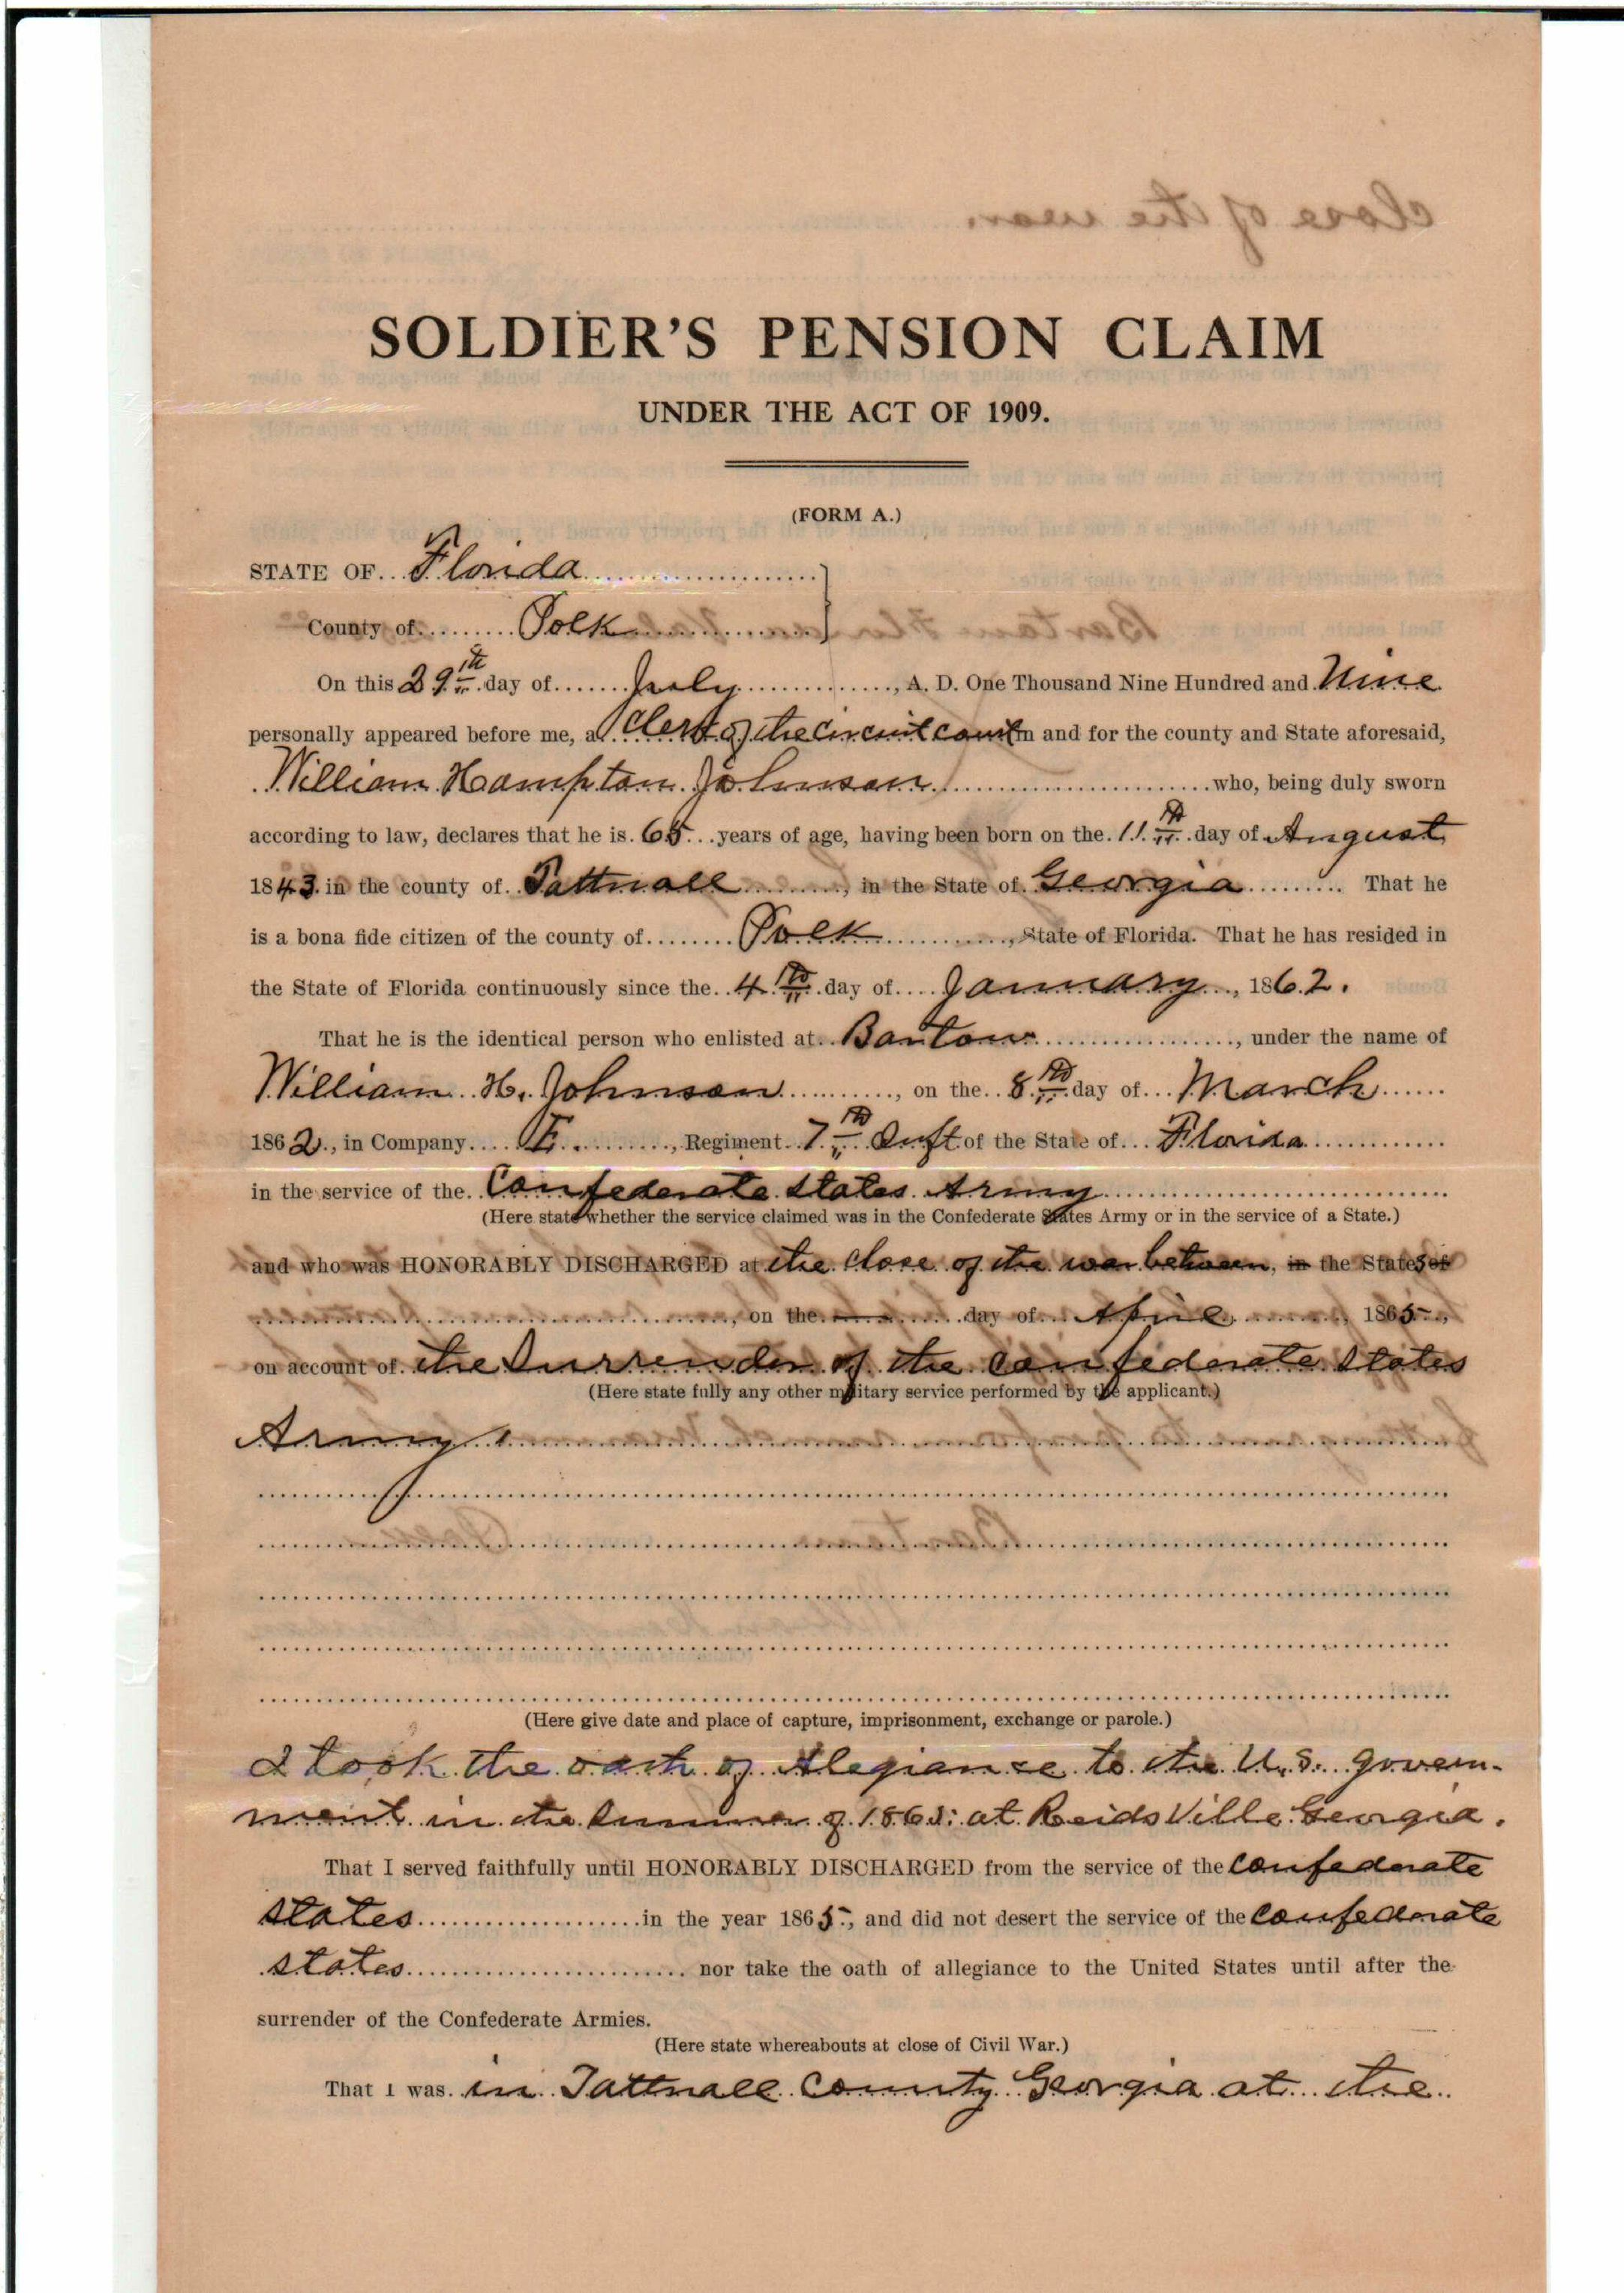 close of the war.
SOLDIER'S PENSION CLAIM
UNDER THE ACT OF 1909.
(FORM A.)
STATE OF Florida
County of Polk
On this 29th day of July, A. D. One Thousand Nine Hundred and Nine
personally appeared before me, a Clerk of the circuit court in and for the county and State aforesaid,
William Hampton Johnson who, being duly sworn
according to law, declares that he is 65 years of age, having been born on the 11th day of August
1843 in the county of Tattnall, in the State of Georgia. That he
is a bona fide citizen of the county of Polk, State of Florida. That he has resided in
the State of Florida continuously since the 4th day of January, 1862.
That he is the identical person who enlisted at Bartow, under the name of
William H. Johnson, on the 8th day of March
1862, in Company E., Regiment 7th Inft of the State of Florida
in the service of the Confederate States Army
(Here state whether the service claimed was in the Confederate States Army or in the service of a State.)
and who was HONORABLY DISCHARGED at the close of the war between, in the States of
, on the day of April, 1865,
on account of the Surrender of the Confederate States
(Here state fully any other military service performed by the applicant.)
Army
(Here give date and place of capture, imprisonment, exchange or parole.)
I took the oath of Alegiance to the U.S. govern-
ment in the Summer of 1865 at Reidsville Georgia.
That I served faithfully until HONORABLY DISCHARGED from the service of the Confederate
States in the year 1865, and did not desert the service of the Confederate
States nor take the oath of allegiance to the United States until after the
surrender of the Confederate Armies.
(Here state whereabouts at close of Civil War.)
That I was in Tattnall County Georgia at the